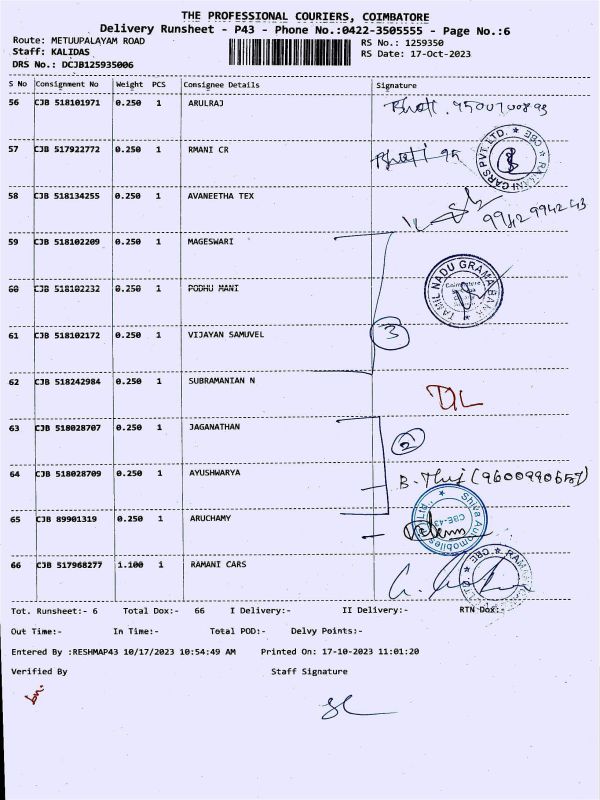 THE PROFESSIONAL COURIERS, COIMBATORE
Delivery Runsheet - P43 - Phone No.:0422-3505555 - Page No.:6
Route: METUUPALAYAM ROAD RS No.: 1259350
Staff: KALIDAS RS Date: 17-Oct-2023
DRS No.: DCJB125935006
S No Consignment No Weight PCS Consignee Details Signature
56 CJB 518101971 0.250 1 ARULRAJ
57 CJB 517922772 0.250 1 RMANI CR
RAMANI CARS PVT.LTD. CBE
58 CJB 518134255 0.250 1 AVANEETHA TEX
9942994243
59 CJB 518102209 0.250 1 MAGESWARI
60 CJB 518102232 0.250 1 PODHU MANI
TAMIL NADU GRAMA BANK
61 CJB 518102172 0.250 1 VIJAYAN SAMUVEL
3
62 CJB 518242984 0.250 1 SUBRAMANIAN N
63 CJB 518028707 0.250 1 JAGANATHAN
2
64 CJB 518028709 0.250 1 AYUSHWARYA
65 CJB 89901319 0.250 1 ARUCHAMY
Shiva Automobiles CBE-43
66 CJB 517968277 1.100 1 RAMANI CARS
Tot. Runsheet:- 6 Total Dox:- 66 I Delivery:- II Delivery:- RTN Dox:-
Out Time:- In Time:- Total POD:- Delvy Points:-
Entered By :RESHMAP43 10/17/2023 10:54:49 AM Printed On: 17-10-2023 11:01:20
Verified By Staff Signature